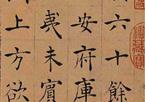 六十餘
安府庫
夷未賓
上方欲